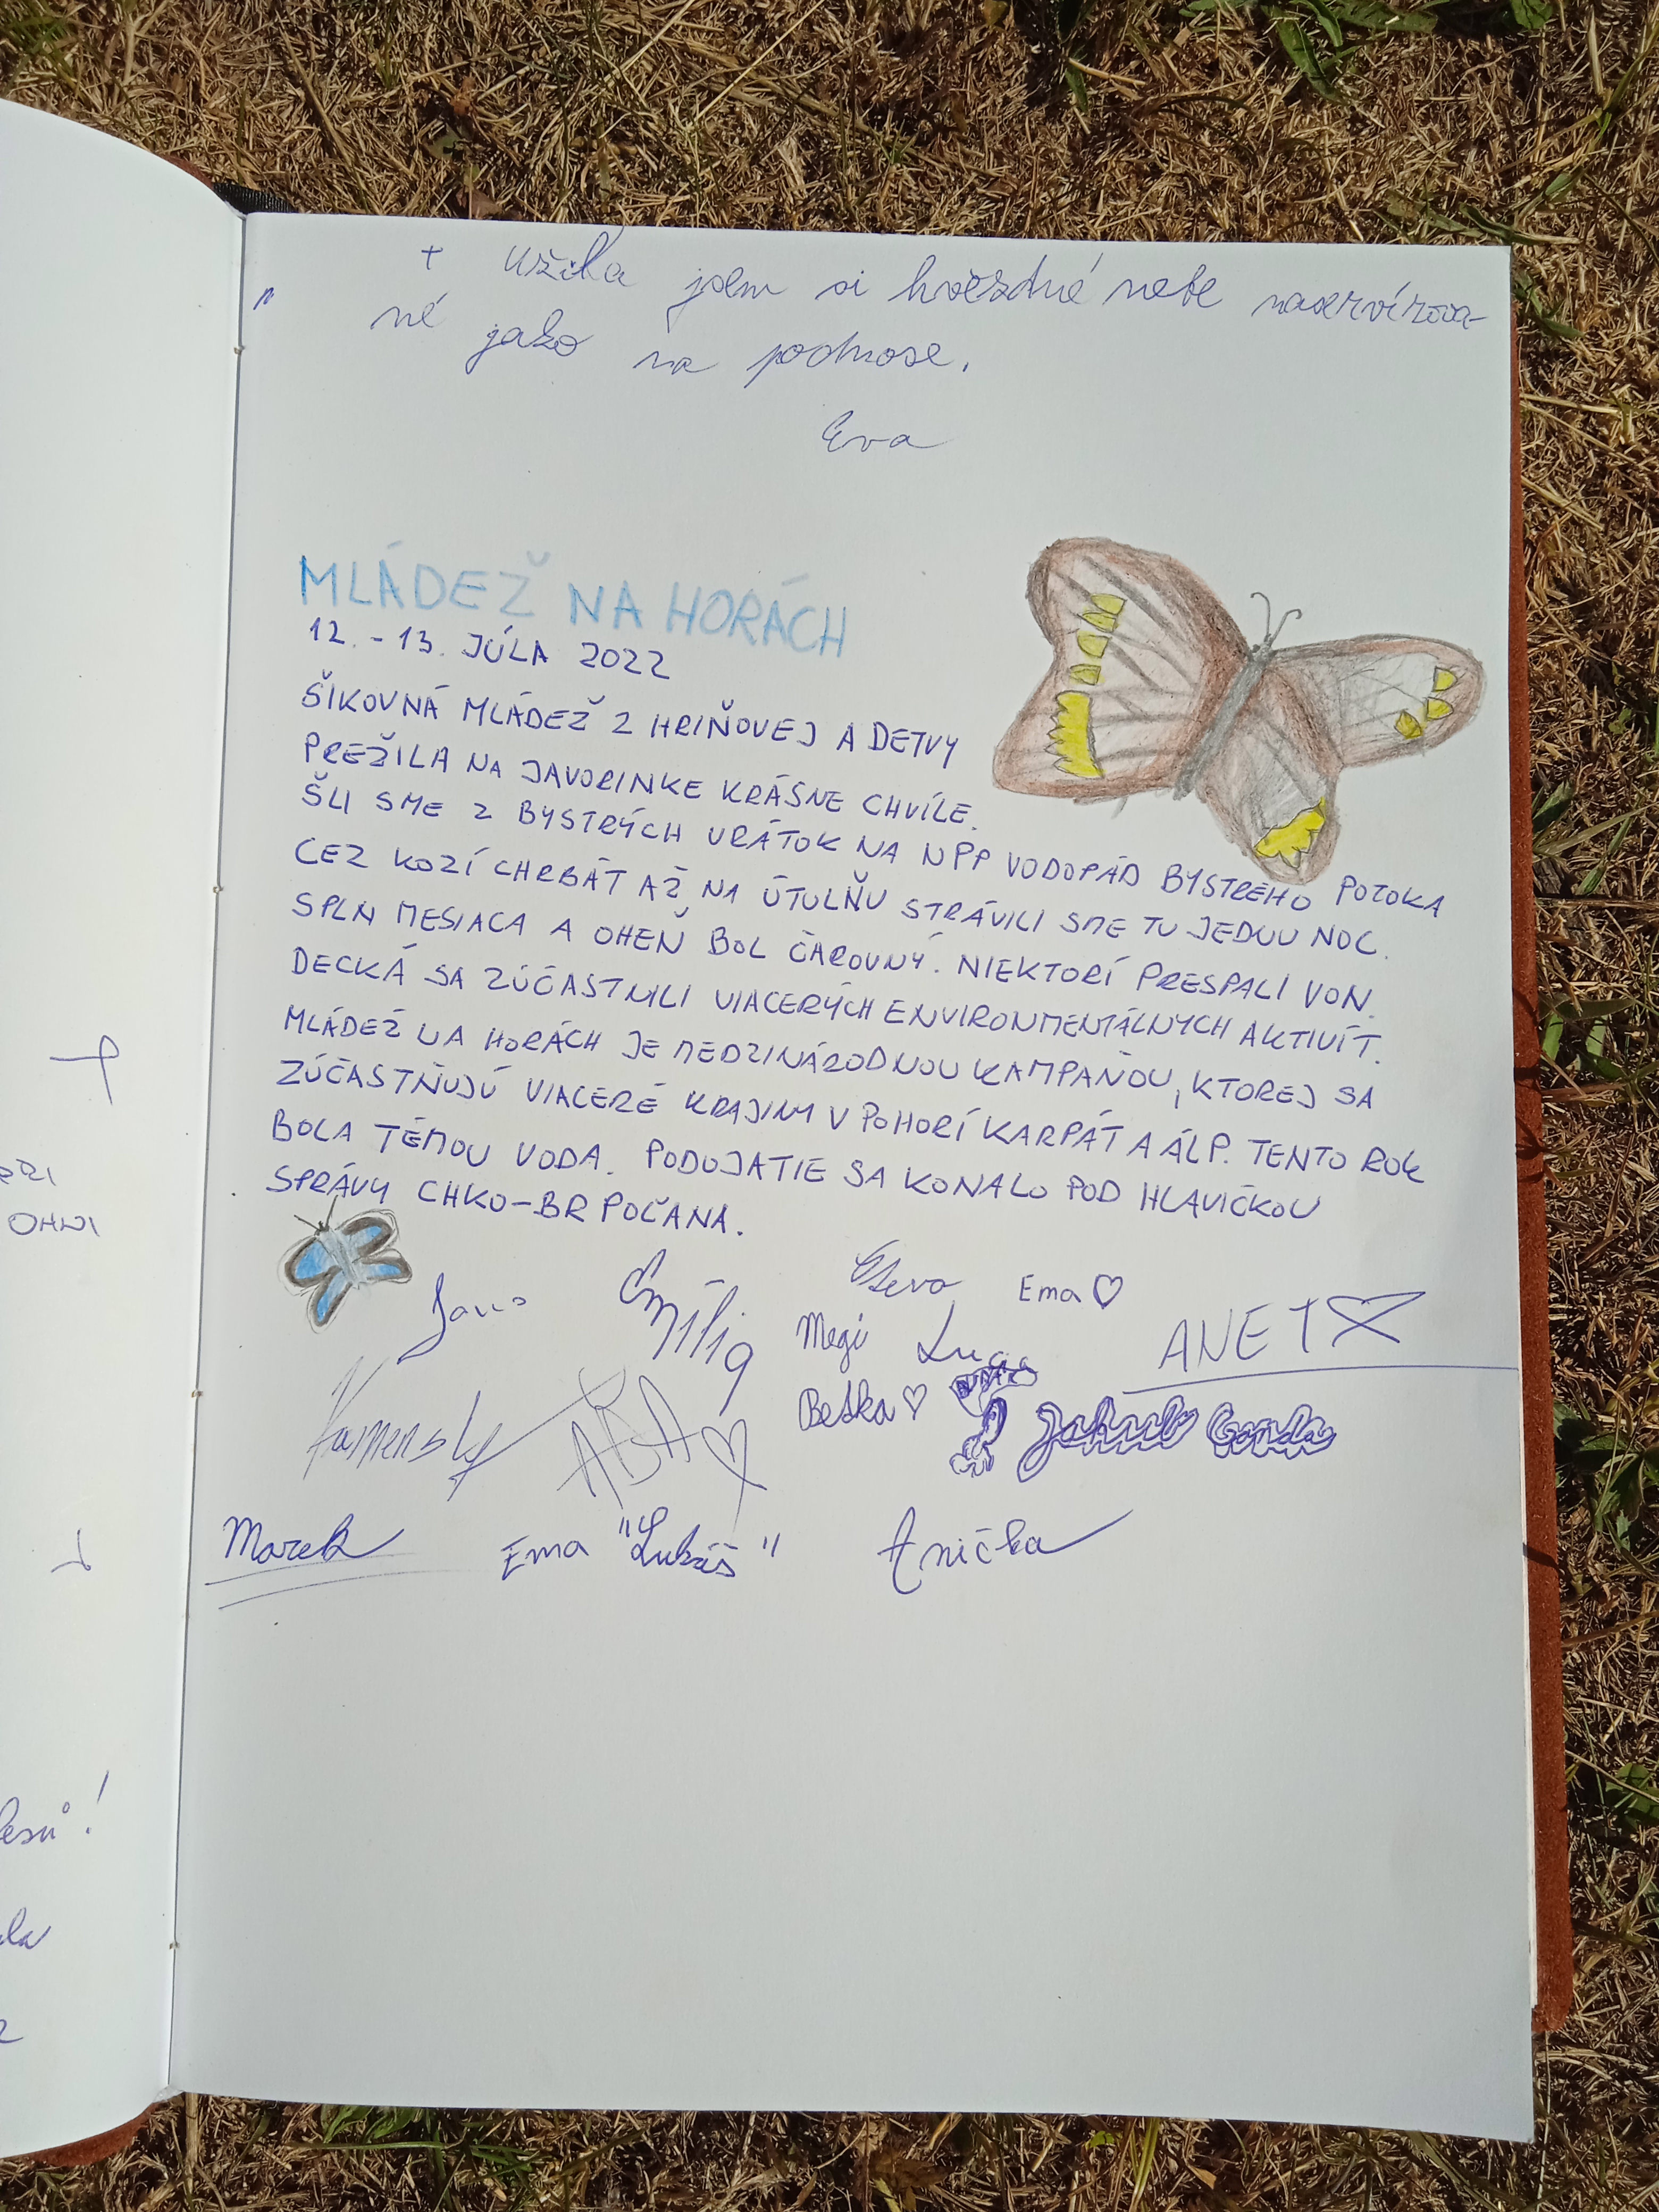 + užila jsem si hvězdné nebe naservírova-
né jako na podnose.
Eva
MLÁDEŽ NA HORÁCH
12. - 13. JÚLA 2022
ŠIKOVNÁ MLÁDEŽ Z HRIŇOVEJ A DETVY
PREŽILA NA JAVORINKE KRÁSNE CHVÍLE.
ŠLI SME Z BYSTRÝCH VRÁTOK NA NPP VODOPÁD BYSTRÉHO POTOKA
CEZ KOZÍ CHRBÁT AŽ NA ÚTULŇU STRÁVILI SME TU JEDNU NOC.
SPLN MESIACA A OHEŇ BOL ČAROVNÝ. NIEKTORÍ PRESPALI VON.
DECKÁ SA ZÚČASTNILI VIACERÝCH ENVIRONMENTÁLNYCH AKTIVÍT.
MLÁDEŽ NA HORÁCH JE MEDZINÁRODNOU KAMPAŇOU, KTOREJ SA
ZÚČASTŇUJÚ VIACERÉ KRAJINY V POHORÍ KARPÁT A ÁLP. TENTO ROK
BOLA TÉMOU VODA. PODUJATIE SA KONALO POD HLAVIČKOU
SPRÁVY CHKO-BR POĽANA.
Emília Ema ♡
Megi ANET
Kamensky ABA ♡ Betka ♡ Jakub Gonda
Marek Ema "Lukáš" Anička
OHNI
lesů!